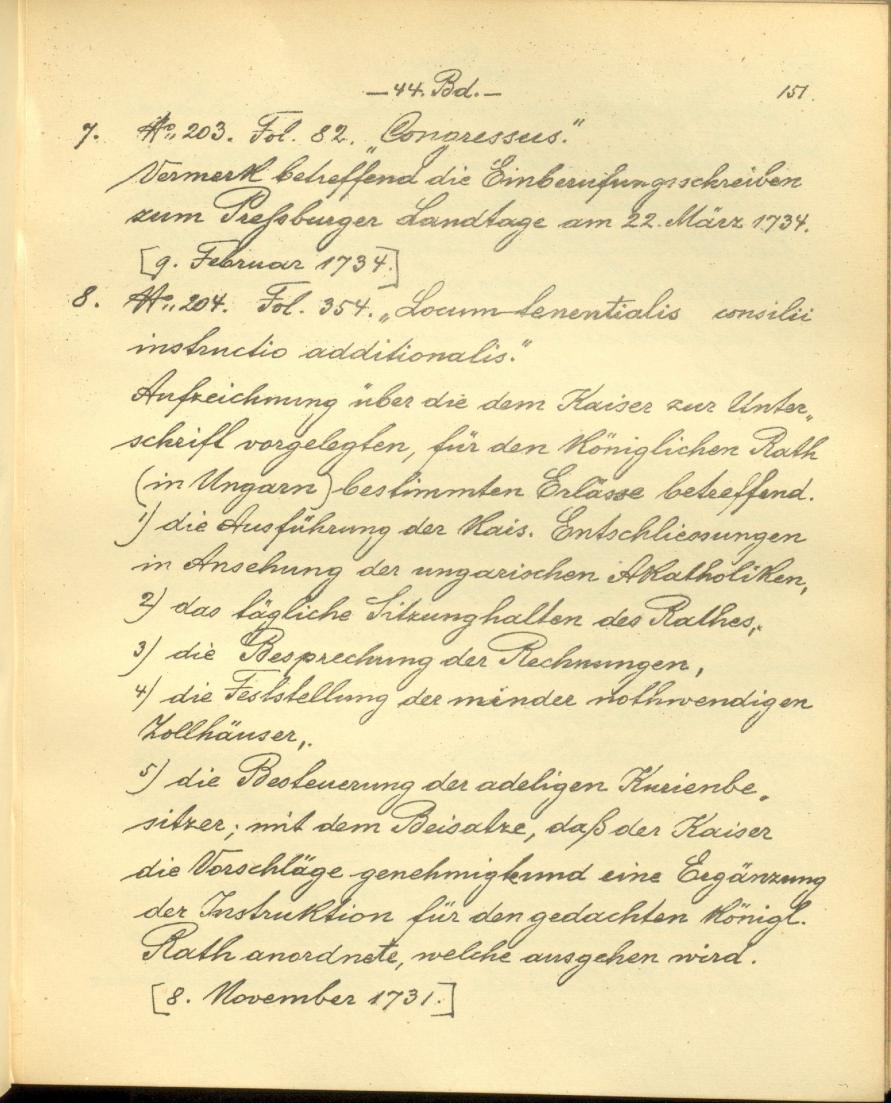 — 44. Bd. — 151.
7. No„ 203. Fol. 82. „Congressus."
Vermerk betreffend die Einberufungsschreiben
zum Preßburger Landtage am 22. März 1734.
[9. Februar 1734.]
8. No„ 204. Fol. 354. „Locum-tenentialis consilii
instructio additionalis."
Aufzeichnung über die dem Kaiser zur Unter„
schrift vorgelegten, für den Königlichen Rath
(in Ungarn) bestimmten Erlässe betreffend.
1) die Ausführung der Kais. Entschliessungen
in Ansehung der ungarischen Akatholiken,
2) das tägliche Sitzunghalten des Rathes,
3) die Besprechung der Rechnungen,
4) die Feststellung der minder nothwendigen
Zollhäuser,
5) die Besteuerung der adeligen Kurienbe„
sitzer; mit dem Beisatze, daß der Kaiser
die Vorschläge genehmigte und eine Ergänzung
der Instruktion für den gedachten Königl.
Rath anordnete, welche ausgehen wird.
[8. November 1731.]